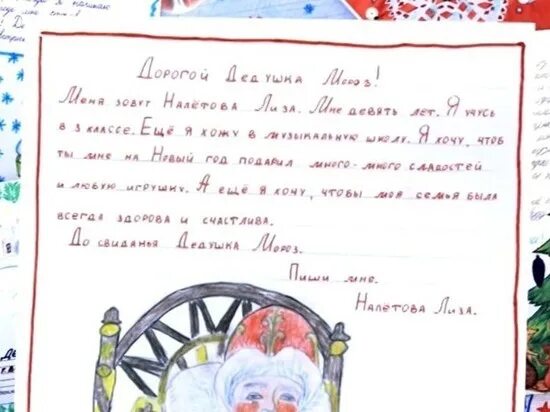 Дорогой Дедушка Мороз!
Меня зовут Налётова Лиза. Мне девять лет. Я учусь
в 3 классе. Ещё я хожу в музыкальную школу. Я хочу, чтоб
ты мне на Новый год подарил много-много сладостей
и любую игрушку. А ещё я хочу, чтобы моя семья была
всегда здорова и счастлива.
До свиданья Дедушка Мороз.
Пиши мне.
Налётова Лиза.